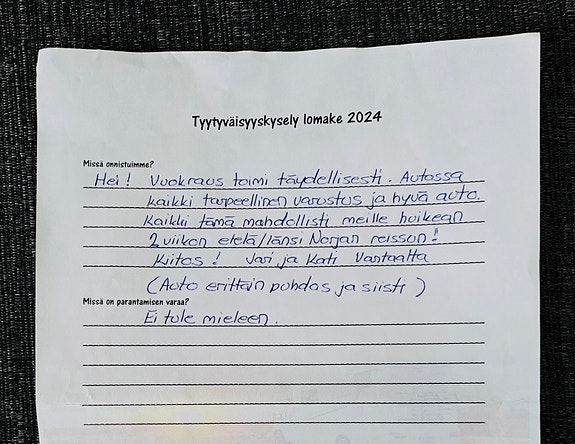 Tyytyväisyyskysely lomake 2024
Missä onnistuimme?
Hei! Vuokraus toimi täydellisesti. Autossa
kaikki tarpeellinen varustus ja hyvä auto.
Kaikki tämä mahdollisti meille huikean
2 viikon etelä/länsi Norjan reissun!
Kiitos! Jari ja Kati Vantaalta
(Auto erittäin puhdas ja siisti)
Missä on parantamisen varaa?
Ei tule mieleen.